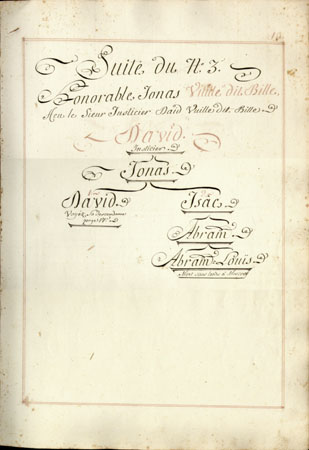 Suite du N.º 3.
Honorable Jonas Vuille dit Bille.
feu le Sieur Justicier David Vuille dit Bille
David.
Justicier
Jonas.
David.
Isac
Voyés sa descendance
page
Abram
Abram Louis.
Mort sans